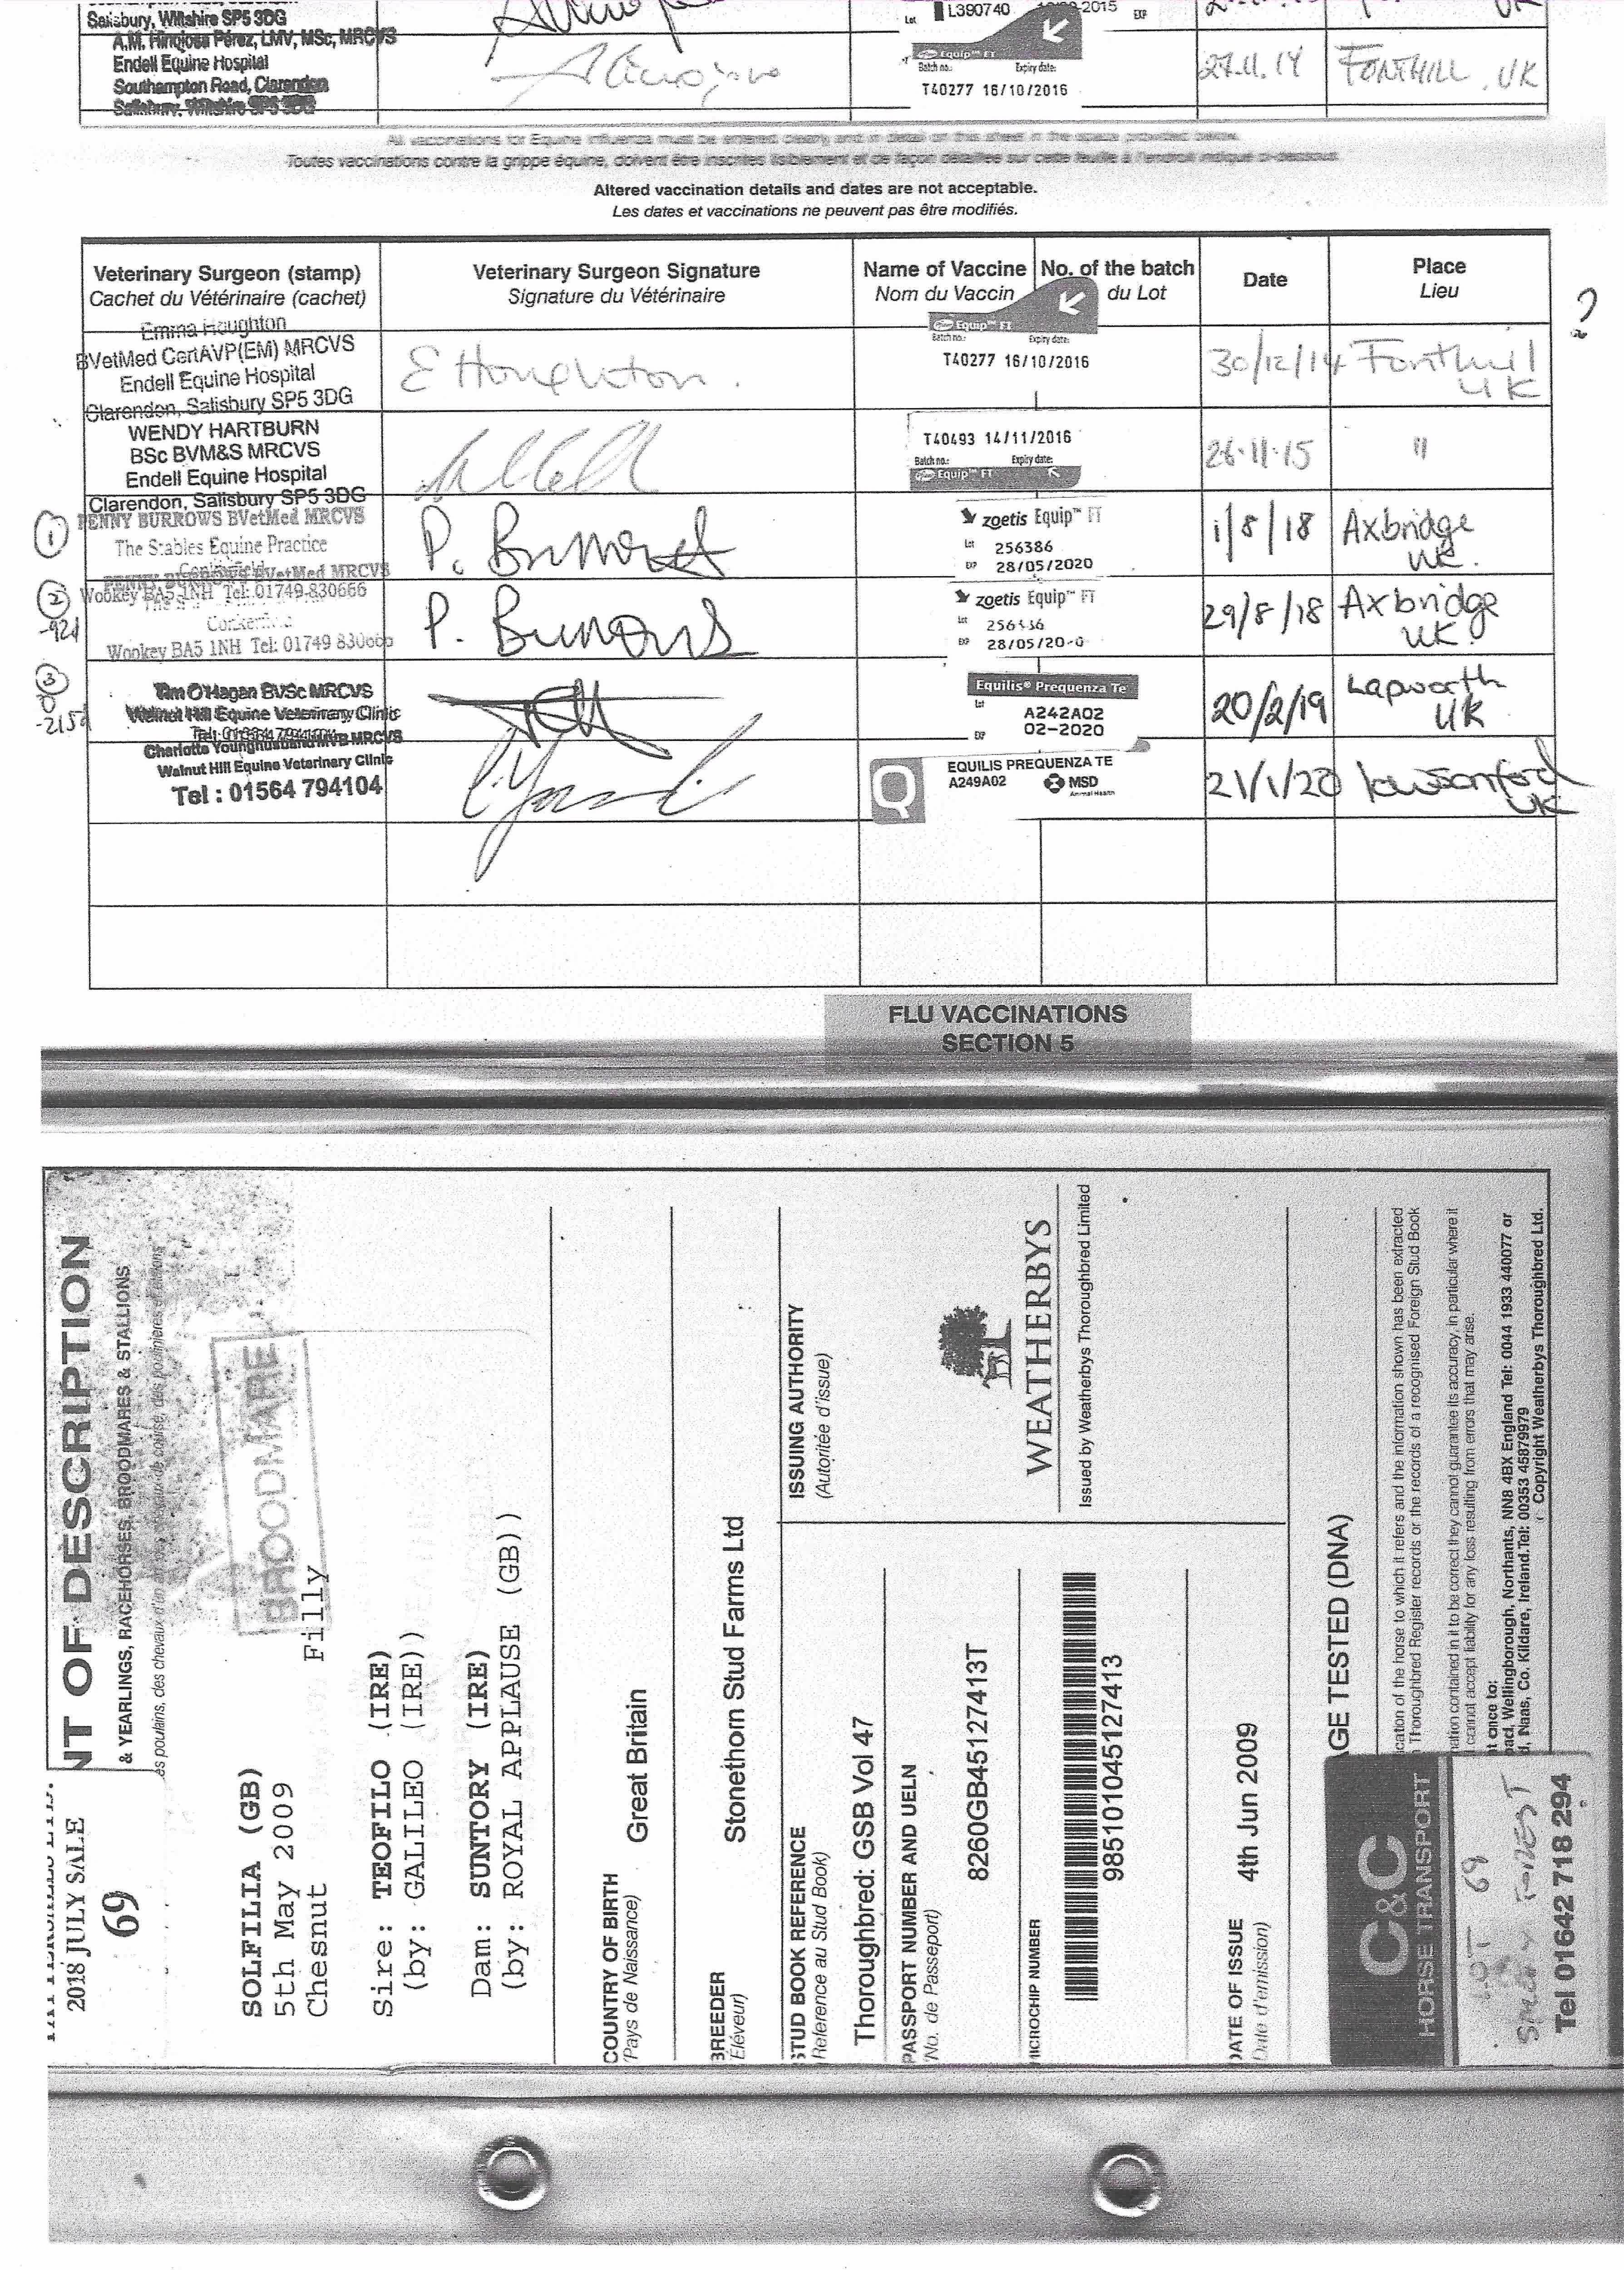 Salisbury, Wiltshire SP5 3DG
Lot L390740 2015 EXP
A.M. Hinojosa Pérez, LMV, MSc, MRCVS
Endell Equine Hospital
Southampton Road, Clarendon
Salisbury, Wiltshire SP5 3DG
Equip™ FT
Batch no.: Expiry date:
T40277 16/10/2016
27.11.14 FONTHILL, UK
All vaccinations for Equine Influenza must be entered clearly and in detail on this sheet in the space provided below.
Toutes vaccinations contre la grippe équine, doivent être inscrites lisiblement et de façon détaillées sur cette feuille à l'endroit indiqué ci-dessous.
Altered vaccination details and dates are not acceptable.
Les dates et vaccinations ne peuvent pas être modifiés.
Veterinary Surgeon (stamp)
Cachet du Vétérinaire (cachet)
Veterinary Surgeon Signature
Signature du Vétérinaire
Name of Vaccine
Nom du Vaccin
No. of the batch
du Lot
Date
Place
Lieu
?
Emma Houghton
BVetMed CertAVP(EM) MRCVS
Endell Equine Hospital
Clarendon, Salisbury SP5 3DG
E Houghton.
Equip™ FT
Batch no.: Expiry date:
T40277 16/10/2016
30/12/14 Fonthill
UK
WENDY HARTBURN
BSc BVM&S MRCVS
Endell Equine Hospital
Clarendon, Salisbury SP5 3DG
T40493 14/11/2016
Batch no.: Expiry date:
Equip™ FT
26.11.15 "
1
PENNY BURROWS BVetMed MRCVS
The Stables Equine Practice
P. Burrows
zoetis Equip™ FT
Lot 256386
EXP 28/05/2020
1/8/18 Axbridge
UK.
2
-92d
PENNY BURROWS BVetMed MRCVS
Wookey BA5 1NH Tel: 01749 830666
Wookey BA5 1NH Tel: 01749 830666
P. Burrows
zoetis Equip™ FT
Lot
EXP 28/05/20-0
29/8/18 Axbridge
UK.
3
-215d
Tim O'Hagan BVSc MRCVS
Walnut Hill Equine Veterinary Clinic
Equilis® Prequenza Te
Lot A242A02
EXP 02-2020
20/2/19 Lapworth
UK
Charlotte Younghusband MVB MRCVS
Walnut Hill Equine Veterinary Clinic
Tel : 01564 794104
Q
EQUILIS PREQUENZA TE
A249A02 MSD
Animal Health
21/1/20 lowsonford
UK
FLU VACCINATIONS
SECTION 5
2018 JULY SALE
69
NT OF DESCRIPTION
& YEARLINGS, RACEHORSES, BROODMARES & STALLIONS
BROODMARE
SOLFILIA (GB)
5th May 2009
Chesnut Filly
Sire: TEOFILO (IRE)
(by: GALILEO (IRE))
Dam: SUNTORY (IRE)
(by: ROYAL APPLAUSE (GB))
COUNTRY OF BIRTH
(Pays de Naissance)
Great Britain
BREEDER
(Éleveur)
Stonethorn Stud Farms Ltd
STUD BOOK REFERENCE
(Reference au Stud Book)
Thoroughbred: GSB Vol 47
PASSPORT NUMBER AND UELN
(No. de Passeport)
8260GB45127413T
MICROCHIP NUMBER
985101045127413
DATE OF ISSUE
(Date d'emission)
4th Jun 2009
ISSUING AUTHORITY
(Autoritée d'issue)
WEATHERBYS
Issued by Weatherbys Thoroughbred Limited
AGE TESTED (DNA)
cation of the horse to which it refers and the information shown has been extracted
Thoroughbred Register records or the records of a recognised Foreign Stud Book
nation contained in it to be correct they cannot guarantee its accuracy, in particular where it
cannot accept liability for any loss resulting from errors that may arise.
t once to:
oad, Wellingborough, Northants, NN8 4BX England Tel: 0044 1933 440077 or
d, Naas, Co. Kildare, Ireland.Tel: 00353 45879979
Copyright Weatherbys Thoroughbred Ltd.
C&C
HORSE TRANSPORT
LOT 69
Tel 01642 718 294